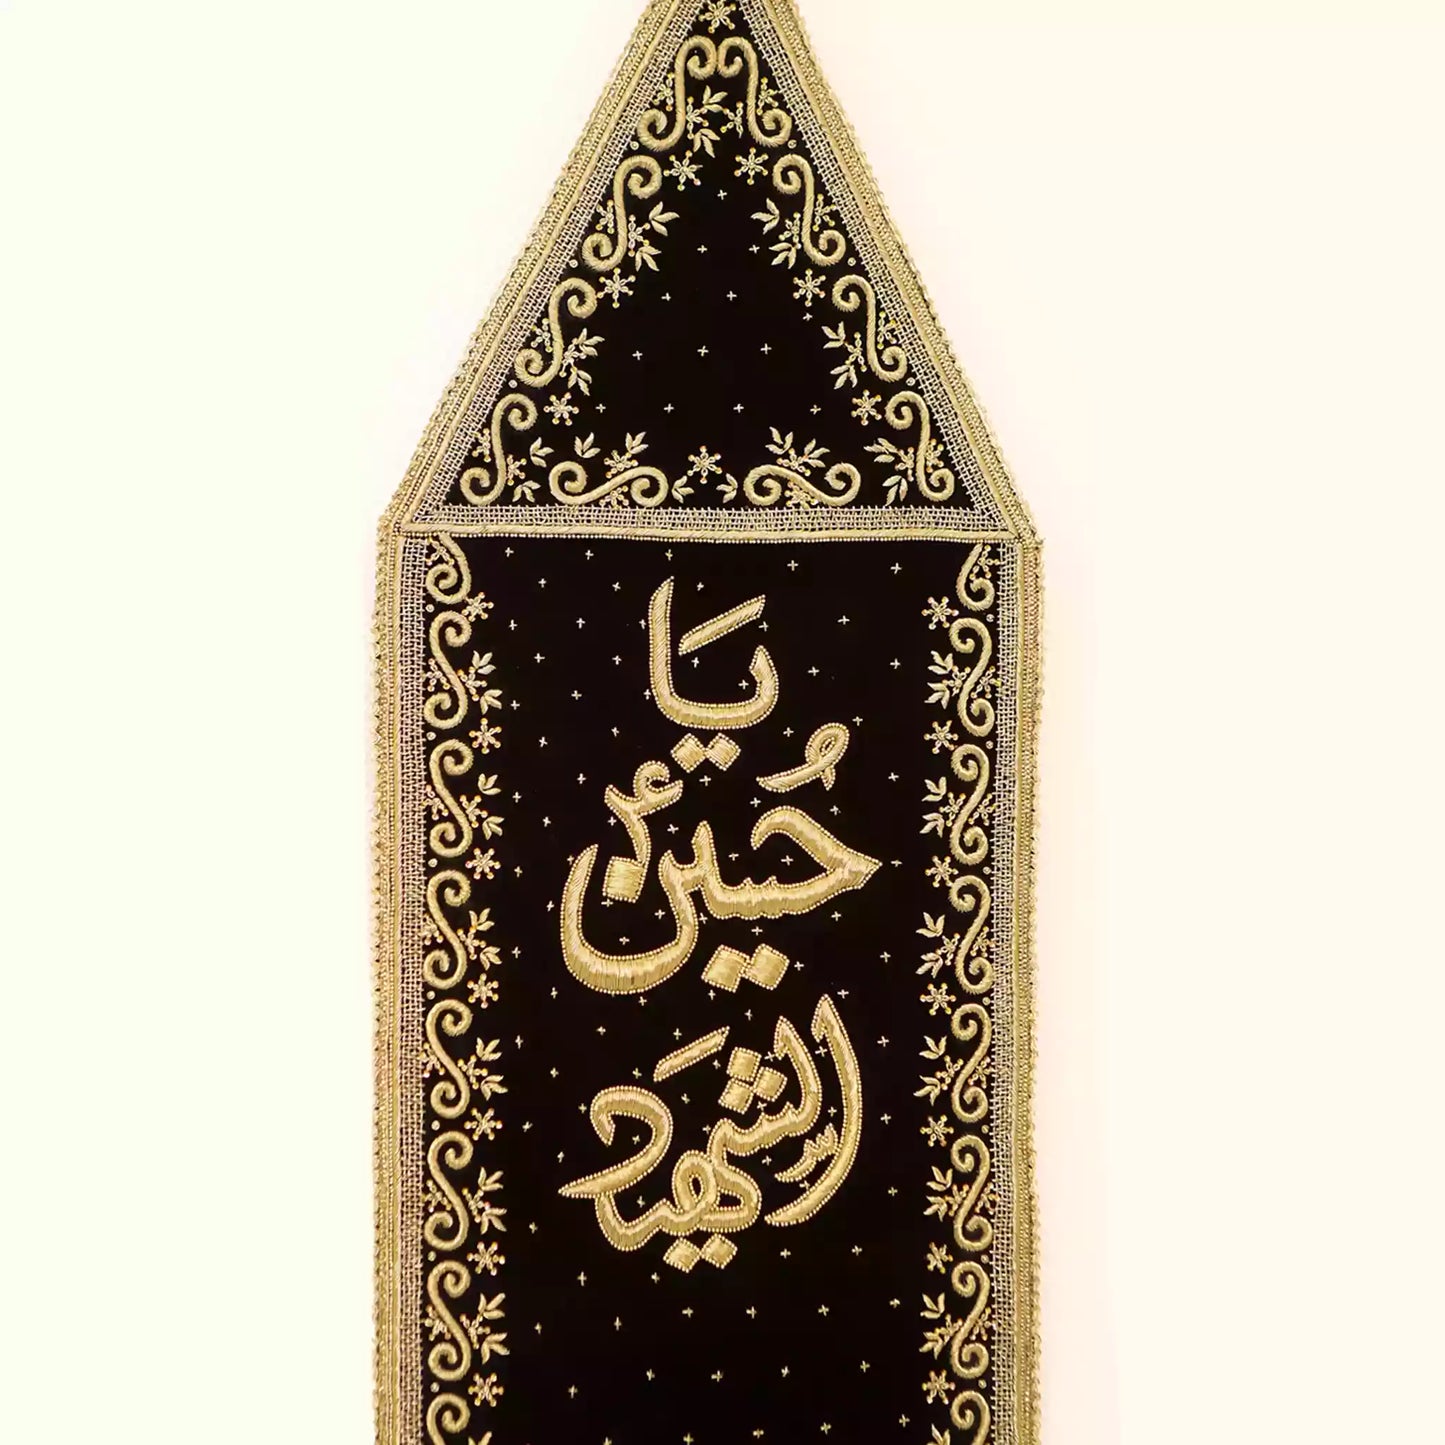 يَا
حُسينؑ
الشهيد